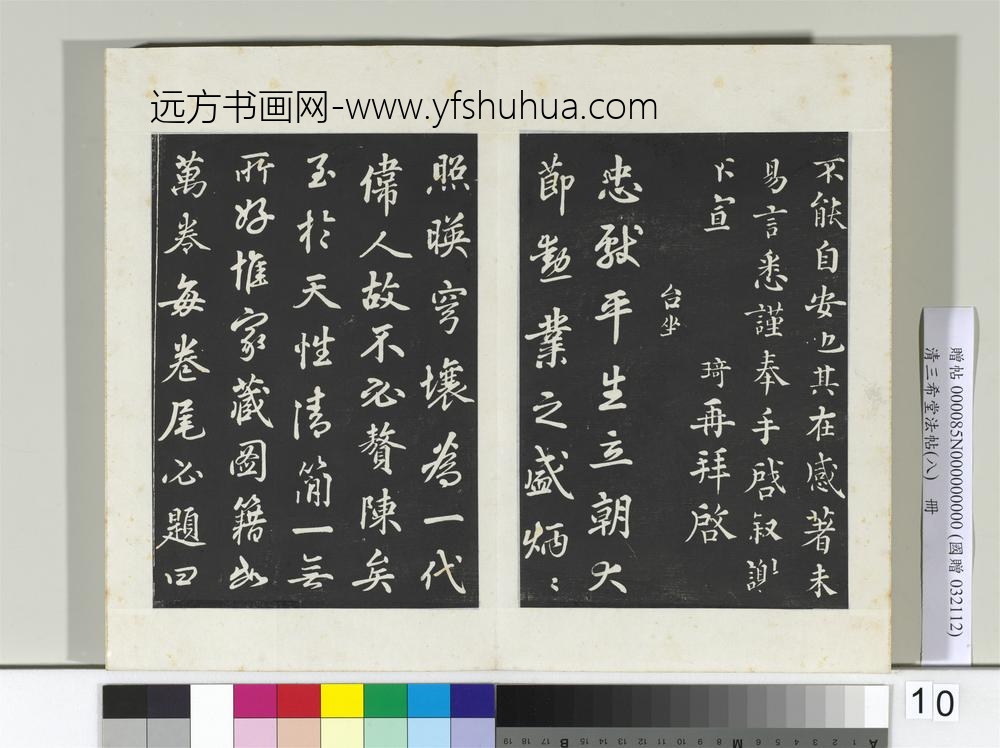 远方书画网-www.yfshuhua.com
不能自安也其在感著未
易言悉謹奉手啓叙謝
不宣
台坐
琦再拜啓
忠獻平生立朝大
節勳業之盛炳〻
照暎穹壤為一代
偉人故不必贅陳矣
至於天性清簡一無
所好惟家藏圖籍
萬卷每卷尾必題曰
贈帖 000085N000000000 (國贈 032112)
清三希堂法帖(八) 冊
10